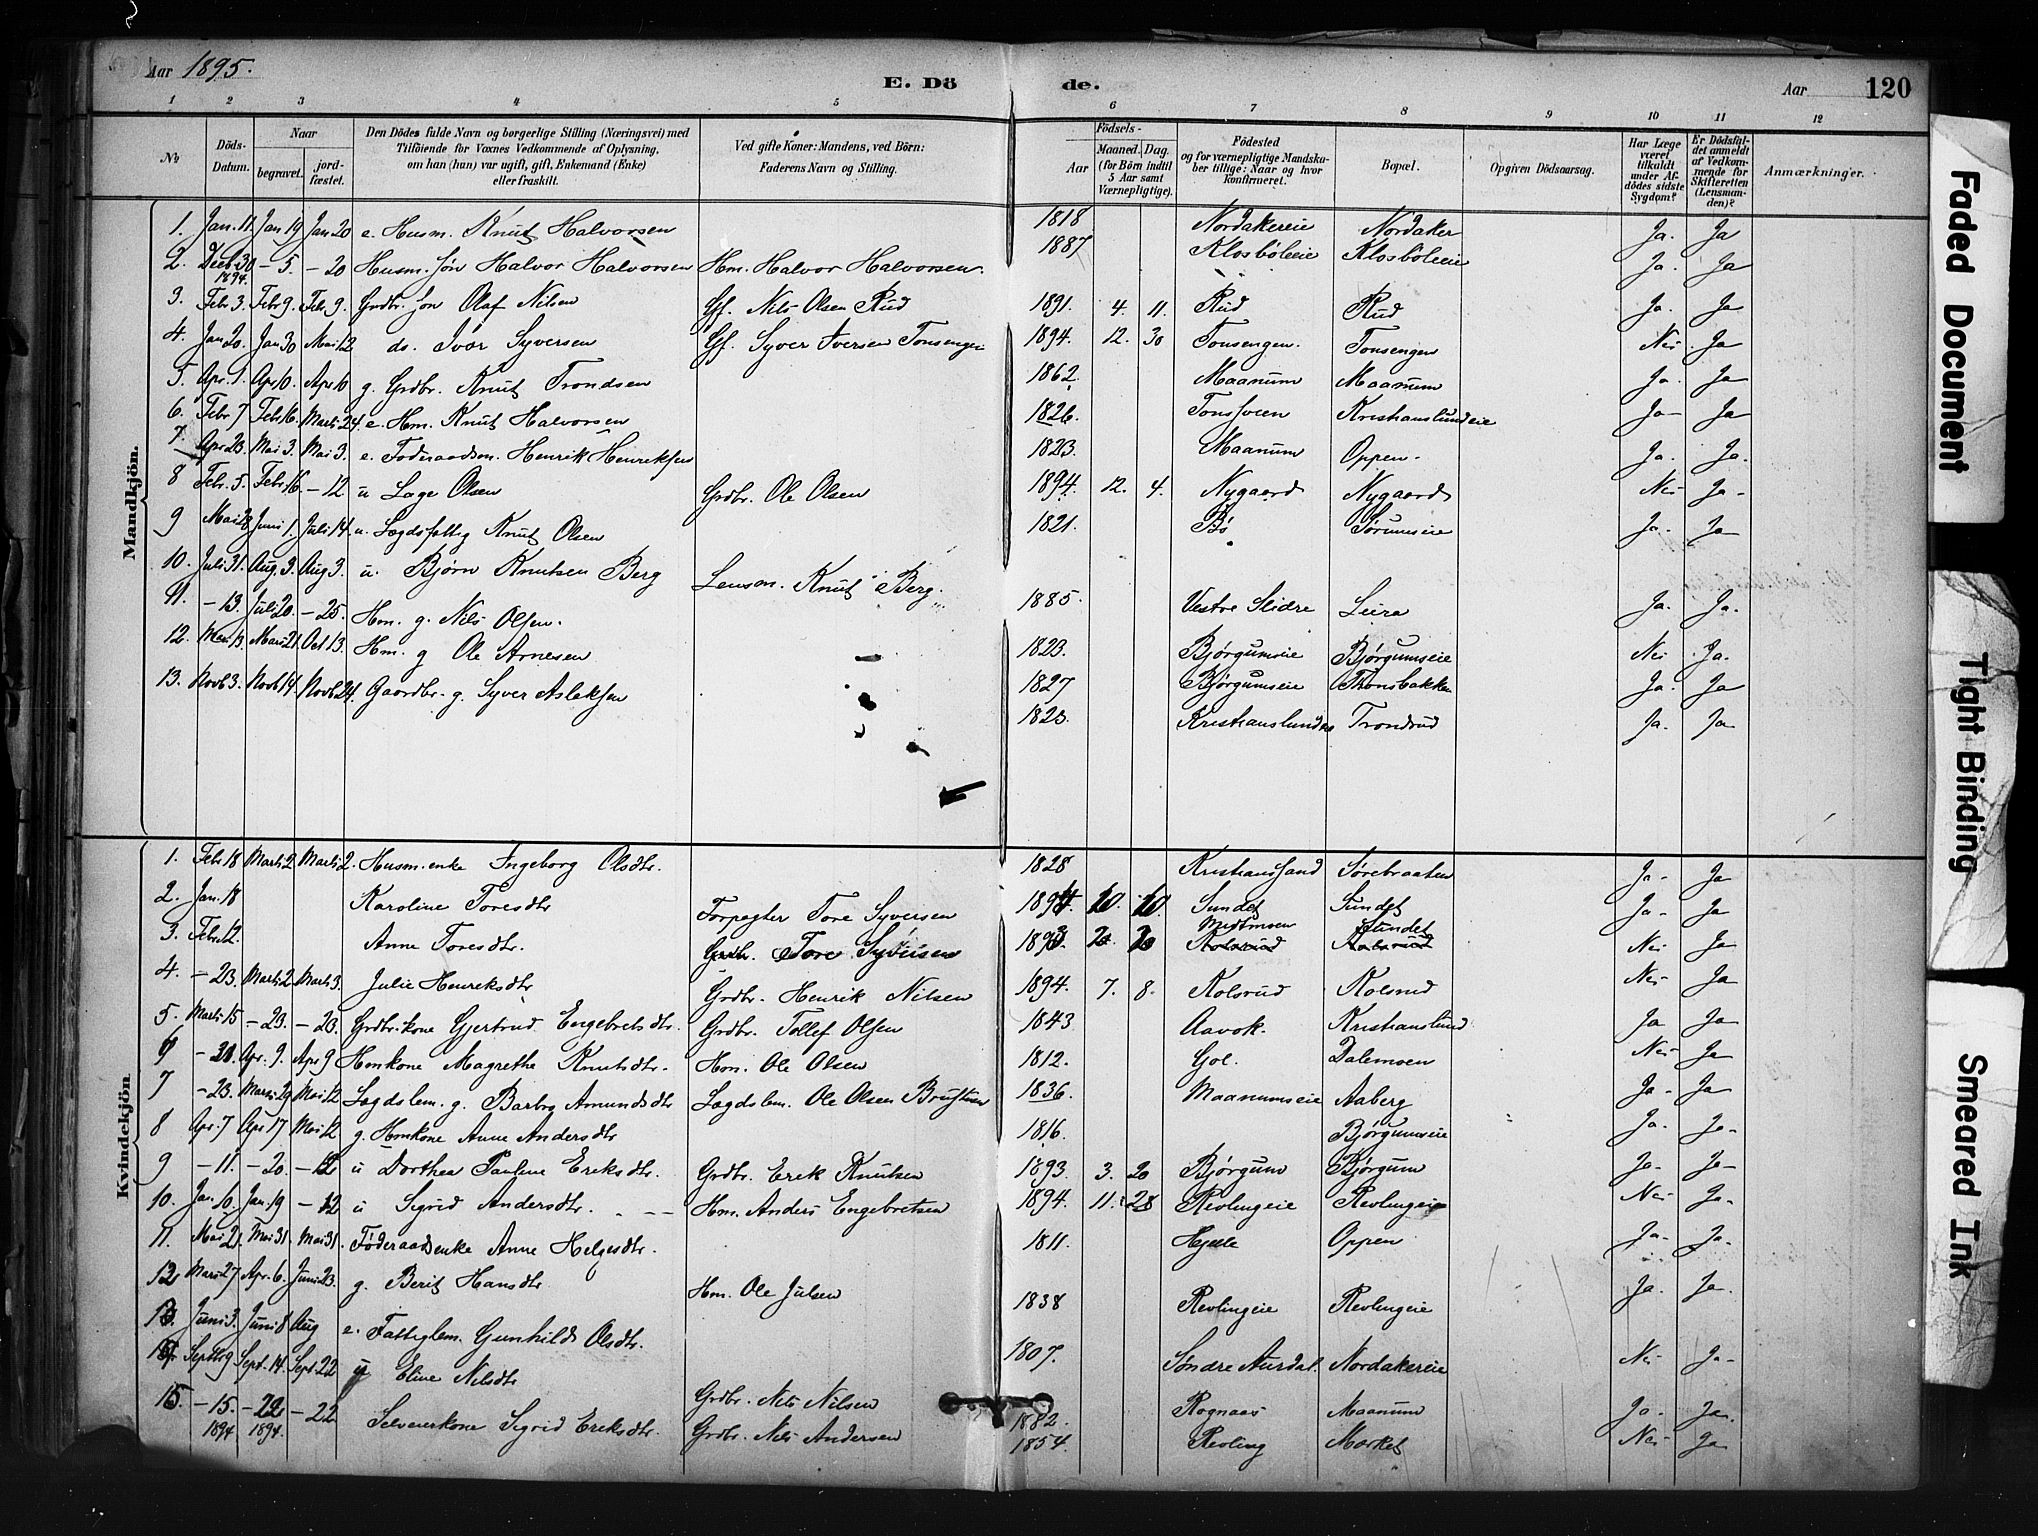 Aar 1895.
E. Döde.
Aar
120
1 2 3 4 5 6 7 8 9 10 11 12
No
Döds-Datum.
Naar
begravet.
jordfæstet.
Den Dödes fulde Navn og borgerlige Stilling (Næringsvei) med Tilföiende for Voxnes Vedkommende af Oplysning, om han (hun) var ugift, gift, Enkemand (Enke) eller fraskilt.
Ved gifte Koner: Mandens, ved Börn: Faderens Navn og Stilling.
Födsels-
Aar
Maaned. Dag.
(for Börn indtil 5 Aar samt Værnepligtige).
Födested og for værnepligtige Mandskaber tillige: Naar og hvor konfirmeret.
Bopæl.
Opgiven Dödsaarsag.
Har Læge været tilkaldt under Afdödes sidste Sygdom?
Er Dödsfaldet anmeldt af Vedkommende for Skifteretten (Lensmanden)?
Anmærkninger.
Mandkjön.
1. Jan. 11. Jan 19 Jan 20 e. Husm. Knut Halvorsen 1818 Nordakereie Nordaker Ja. Ja
2. Decb. 30 1894. – 5. – 20 Husm. søn Halvor Halvorsen Hm. Halvor Halvorsen. 1887 Klosböleeie Klosböleeie Ja. Ja
3. Febr 3. Febr 9. Febr 9. Grdbr. søn Olaf Nilsen Gf. Nils Olsen Rud 1891. 4. 11. Rud Rud Ja. Ja
4. Jan 20. Jan 30 Mai 12 ds. Ivar Syversen Gf. Syver Iversen Tonsengen 1894. 12. 30 Tonsengen. Tonsengen Nei Ja
5. Apr. 1. Apr 10. Apr 10 g. Grdbr. Knut Trondsen 1862. Maanum Maanum Ja. Ja
6. Febr 7 Febr 16. Marts 24. e. Hm. Knut Halvorsen 1826. Tonsveen Kristianslundeie Ja Ja
7. Apr 23. Mai 3. Mai 3. e. Foderaadsm. Henrik Henriksen 1823. Maanum Oppen. Ja. Ja.
8 Febr. 5. Febr 16. – 12. u Lage Olsen Grdbr. Ole Olsen 1894. 12. 4. Nygaard Nygaard Nei Ja
9 Mai 28 Juni 1. Juli 14. u. Lægdsfattig Knut Olsen 1821. Bö Sörumseie Ja. Ja
10. Juli 31. Aug. 3. Aug 3. u. Bjørn Knutsen Berg Lensm. Knut Berg. 1885. Vestre Slidre Leira Ja. Ja.
11. – 13. Juli 20. – 25. Hm. g. Nils Olsen. 1823. Bjørgumseie Bjørgumseie Nei Ja.
12. Mar. 13. Mars 21. Oct 13. Hm. g Ole Arnesen 1827 Bjørgumseie Tronsbakken Ja. Ja
13. Novb 3. Novb 14. Novb 24. Gaardbr. g. Syver Aslaksen 1823. Trondrud Ja. Ja
Kvindekjön
1. Febr 18 Marts 2 Marts 2. Husm. enke Ingeborg Olsdtr. 1828 Kristianssand Sørebraaten Ja Ja
2. Jan. 18 Karoline Toresdtr Forpagter Tore Syversen 10. 10. Sundet Sundet Ja Ja
3. Febr 12. Anne Toresdtr. Grdbr. Tore Syversen 20 Midtmoen Sundet Nei Ja
4. – 23. Marts 2 Marts 3. Julie Henriksdtr Grdbr. Henrik Nilsen 1894. 7. 8. Kolsrud Kolsrud Nei Ja
5. Marts 15 – 23. – 23. Grdbr. kone Gjertrud Engebretsdtr. Grdbr. Tollef Olsen 1843 Aavok. Kristianslund Ja Ja
6 Apr. 9. Apr 9 Hmkone Magrethe Knutsdtr. Hm. Ole Olsen 1812. Gol. Dalemoen Nei Ja
7 – 23. Marts 29 Mai 12 Lægdslem. g. Barbro Amundsdtr Lægdslem. Ole Olsen 1836. Maanumseie Aaberg Ja Ja
8 Apr. 7 Apr 17 Mai 12 g. Hmkone Anne Andersdtr 1816. Bjørgumseie Ja. Ja
9 – 11. – 20. – 12 u Dorthea Pauline Eriksdtr. Grdbr. Erik Knutsen 1893 3. 20 Bjørgum Bjørgum Ja Ja
10. Jan. 10. Jan. 19 – 12 u Sigrid Andersdtr. Hm. Anders Engebretsen 1894. 11. 28 Revlingeie Revlingeie Nei Ja.
11. Mai 21. Mai 31. Mai 31. Føderaadsenke Anne Helgesdtr. 1811. Hjelle Oppen Ja. Ja.
12 Mars 27 Apr. 6. Juni 23. g. Berit Hansdtr Hm. Ole Julsen 1838 Revlingeie Revlingeie Ja. Ja.
13. Juni 3. Juni 8 Aug e. Fattiglem. Gunhild Olsdtr. 1807. Søndre Aurdal. Nordakereie Nei Ja
14. Septb 9 Sept. 14. Sept. 22 u Eline Nilsdtr Grdbr. Nils Nilsen 1882. Rognaas Maanum Ja. Ja.
15 – 15. 1894 – 22 1894. – 22 Selveierkone Sigrid Eriksdtr. Grdbr. Nils Andersen 1854. Revling Morket Nei Ja
Faded Document
Tight Binding
Smeared Ink